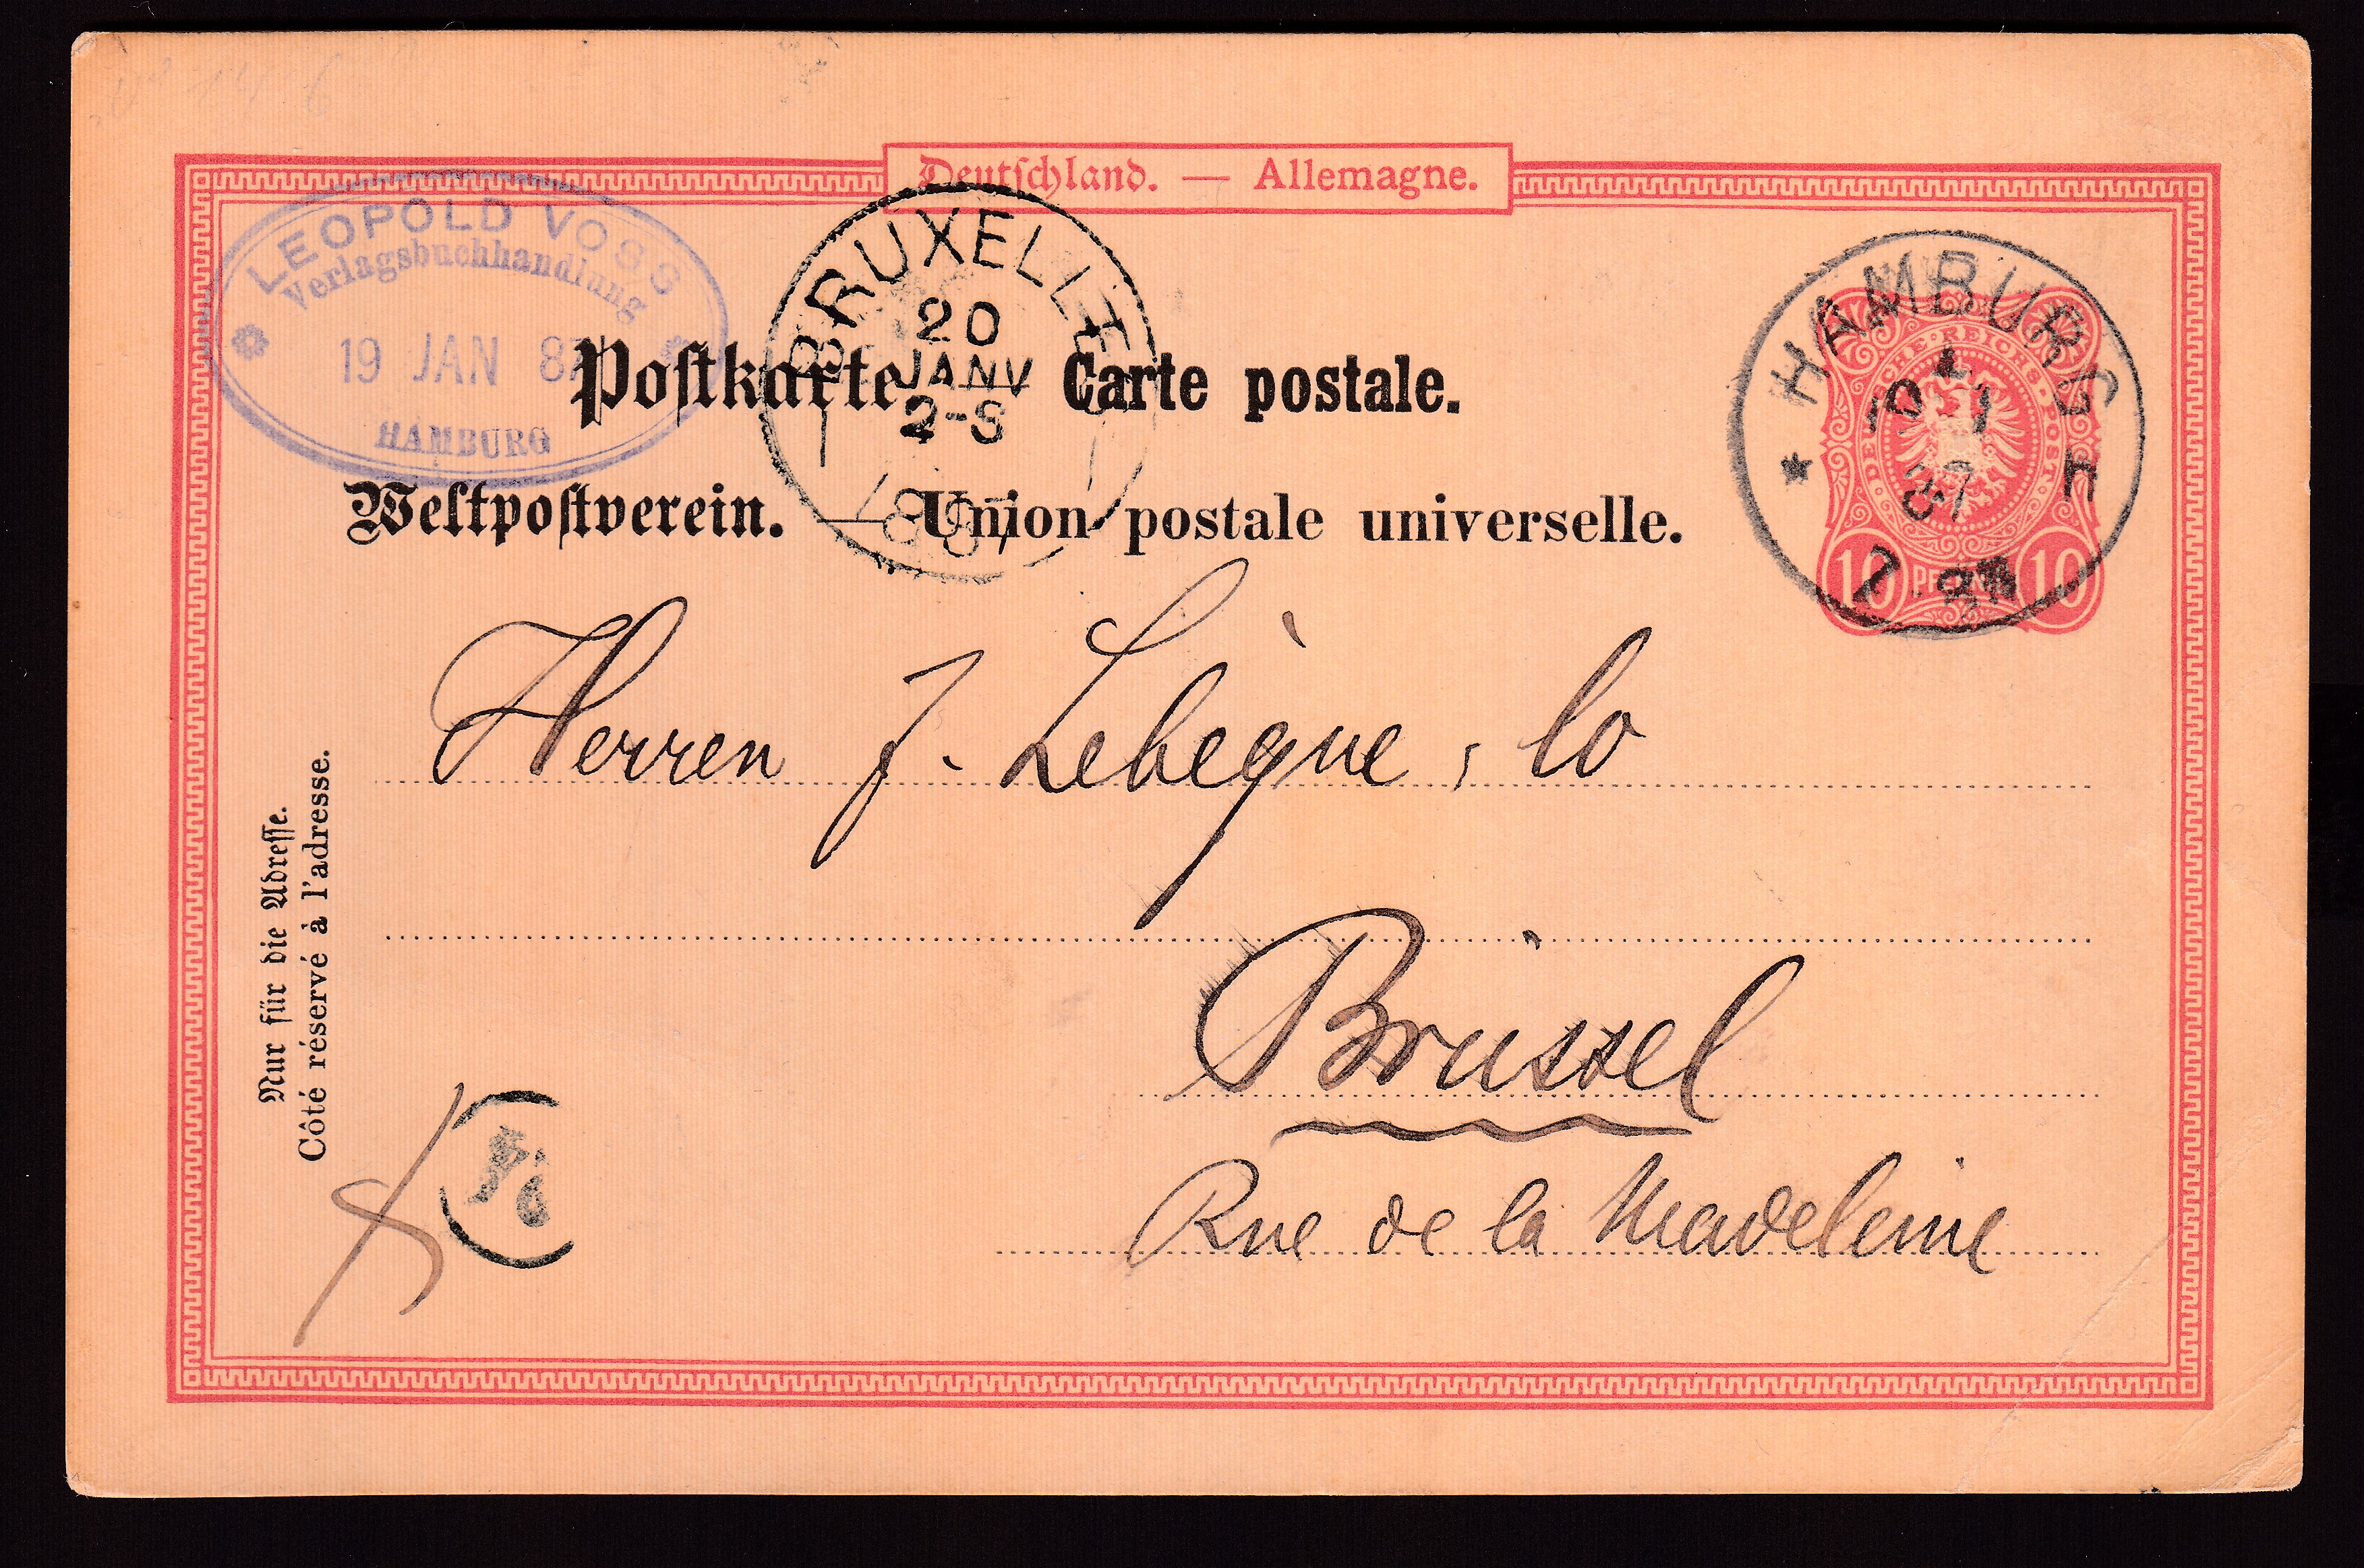 Deutschland. — Allemagne.
LEOPOLD VOSS
Verlagsbuchhandlung
19 JAN 87
HAMBURG
BRUXELLES
20
JANV
2-S
1887
HAMBURG
1
87
DEUTSCHE·REICHS-POST
10 PFENNIG 10
Postkarte — Carte postale.
Weltpostverein. — Union postale universelle.
Herren J. Lebègue, Co
Brüssel
Rue de la Madeleine
Nur für die Adresse.
Côté réservé à l'adresse.